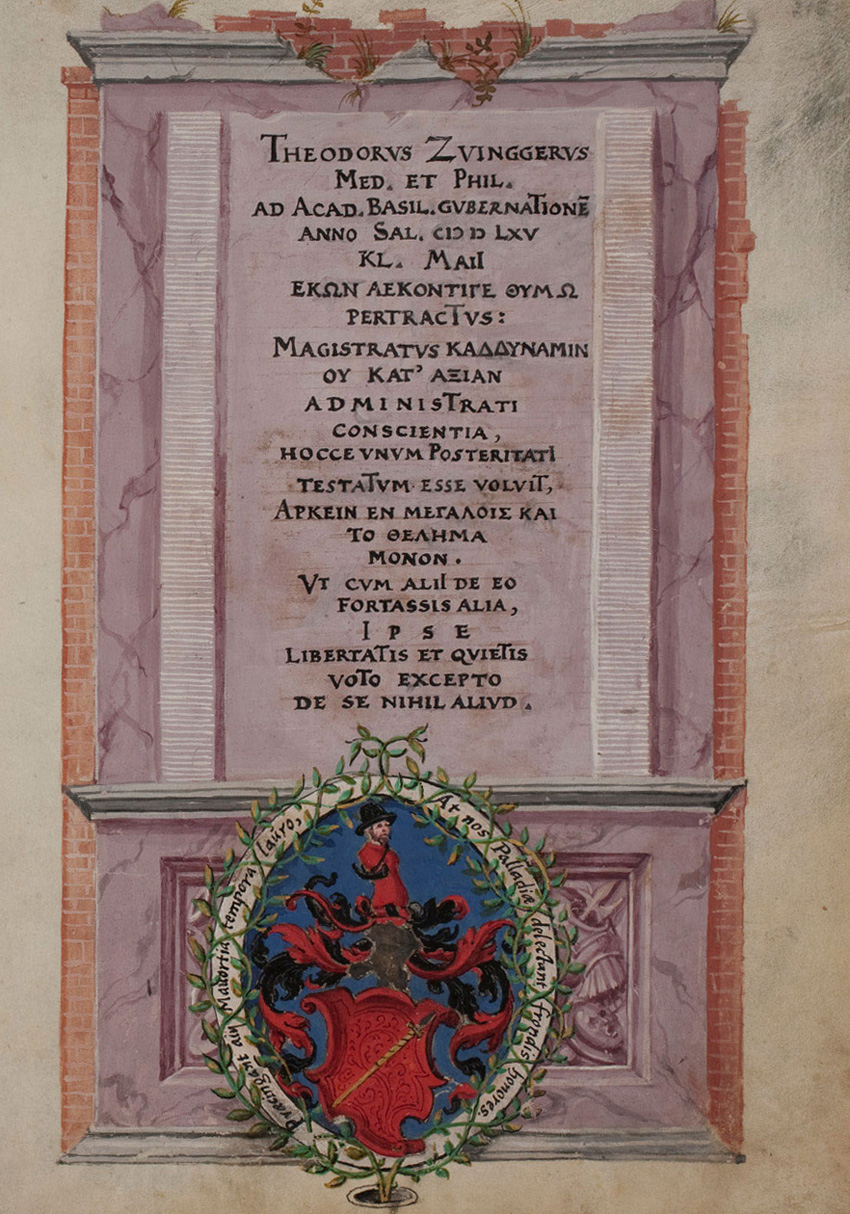 THEODORVS ZVINGGERVS
MED. ET PHIL.
AD ACAD. BASIL. GVBERNATIONẼ
ANNO SAL. CIↃ IↃ LXV
KL. MAII
ΕΚΩΝ ΑΕΚΟΝΤΙΓΕ ΘΥΜΩ
PERTRACTVS:
MAGISTRATVS ΚΑΔΔΥΝΑΜΙΝ
ΟΥ ΚΑΤ' ΑΞΙΑΝ
ADMINISTRATI
CONSCIENTIA,
HOCCE VNVM POSTERITATI
TESTATVM ESSE VOLVIT,
ΑΡΚΕΙΝ ΕΝ ΜΕΓΑΛΟΙΣ ΚΑΙ
ΤΟ ΘΕΛΗΜΑ
ΜΟΝΟΝ.
VT CVM ALII DE EO
FORTASSIS ALIA,
IPSE
LIBERTATIS ET QVIETIS
VOTO EXCEPTO
DE SE NIHIL ALIVD.
Praecingant alij Mavortia tempora lauro,
At nos Palladiæ delectant frondis honores.